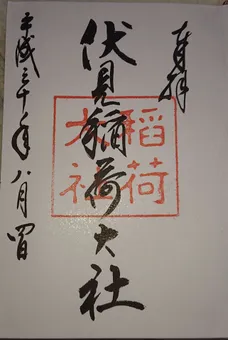 奉拝
伏見稲荷大社
稲荷
大社
平成三十年八月四日